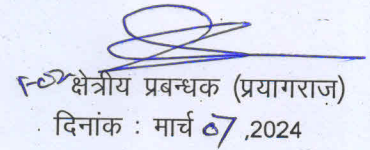 For क्षेत्रीय प्रबन्धक (प्रयागराज)
दिनांक : मार्च 07 ,2024